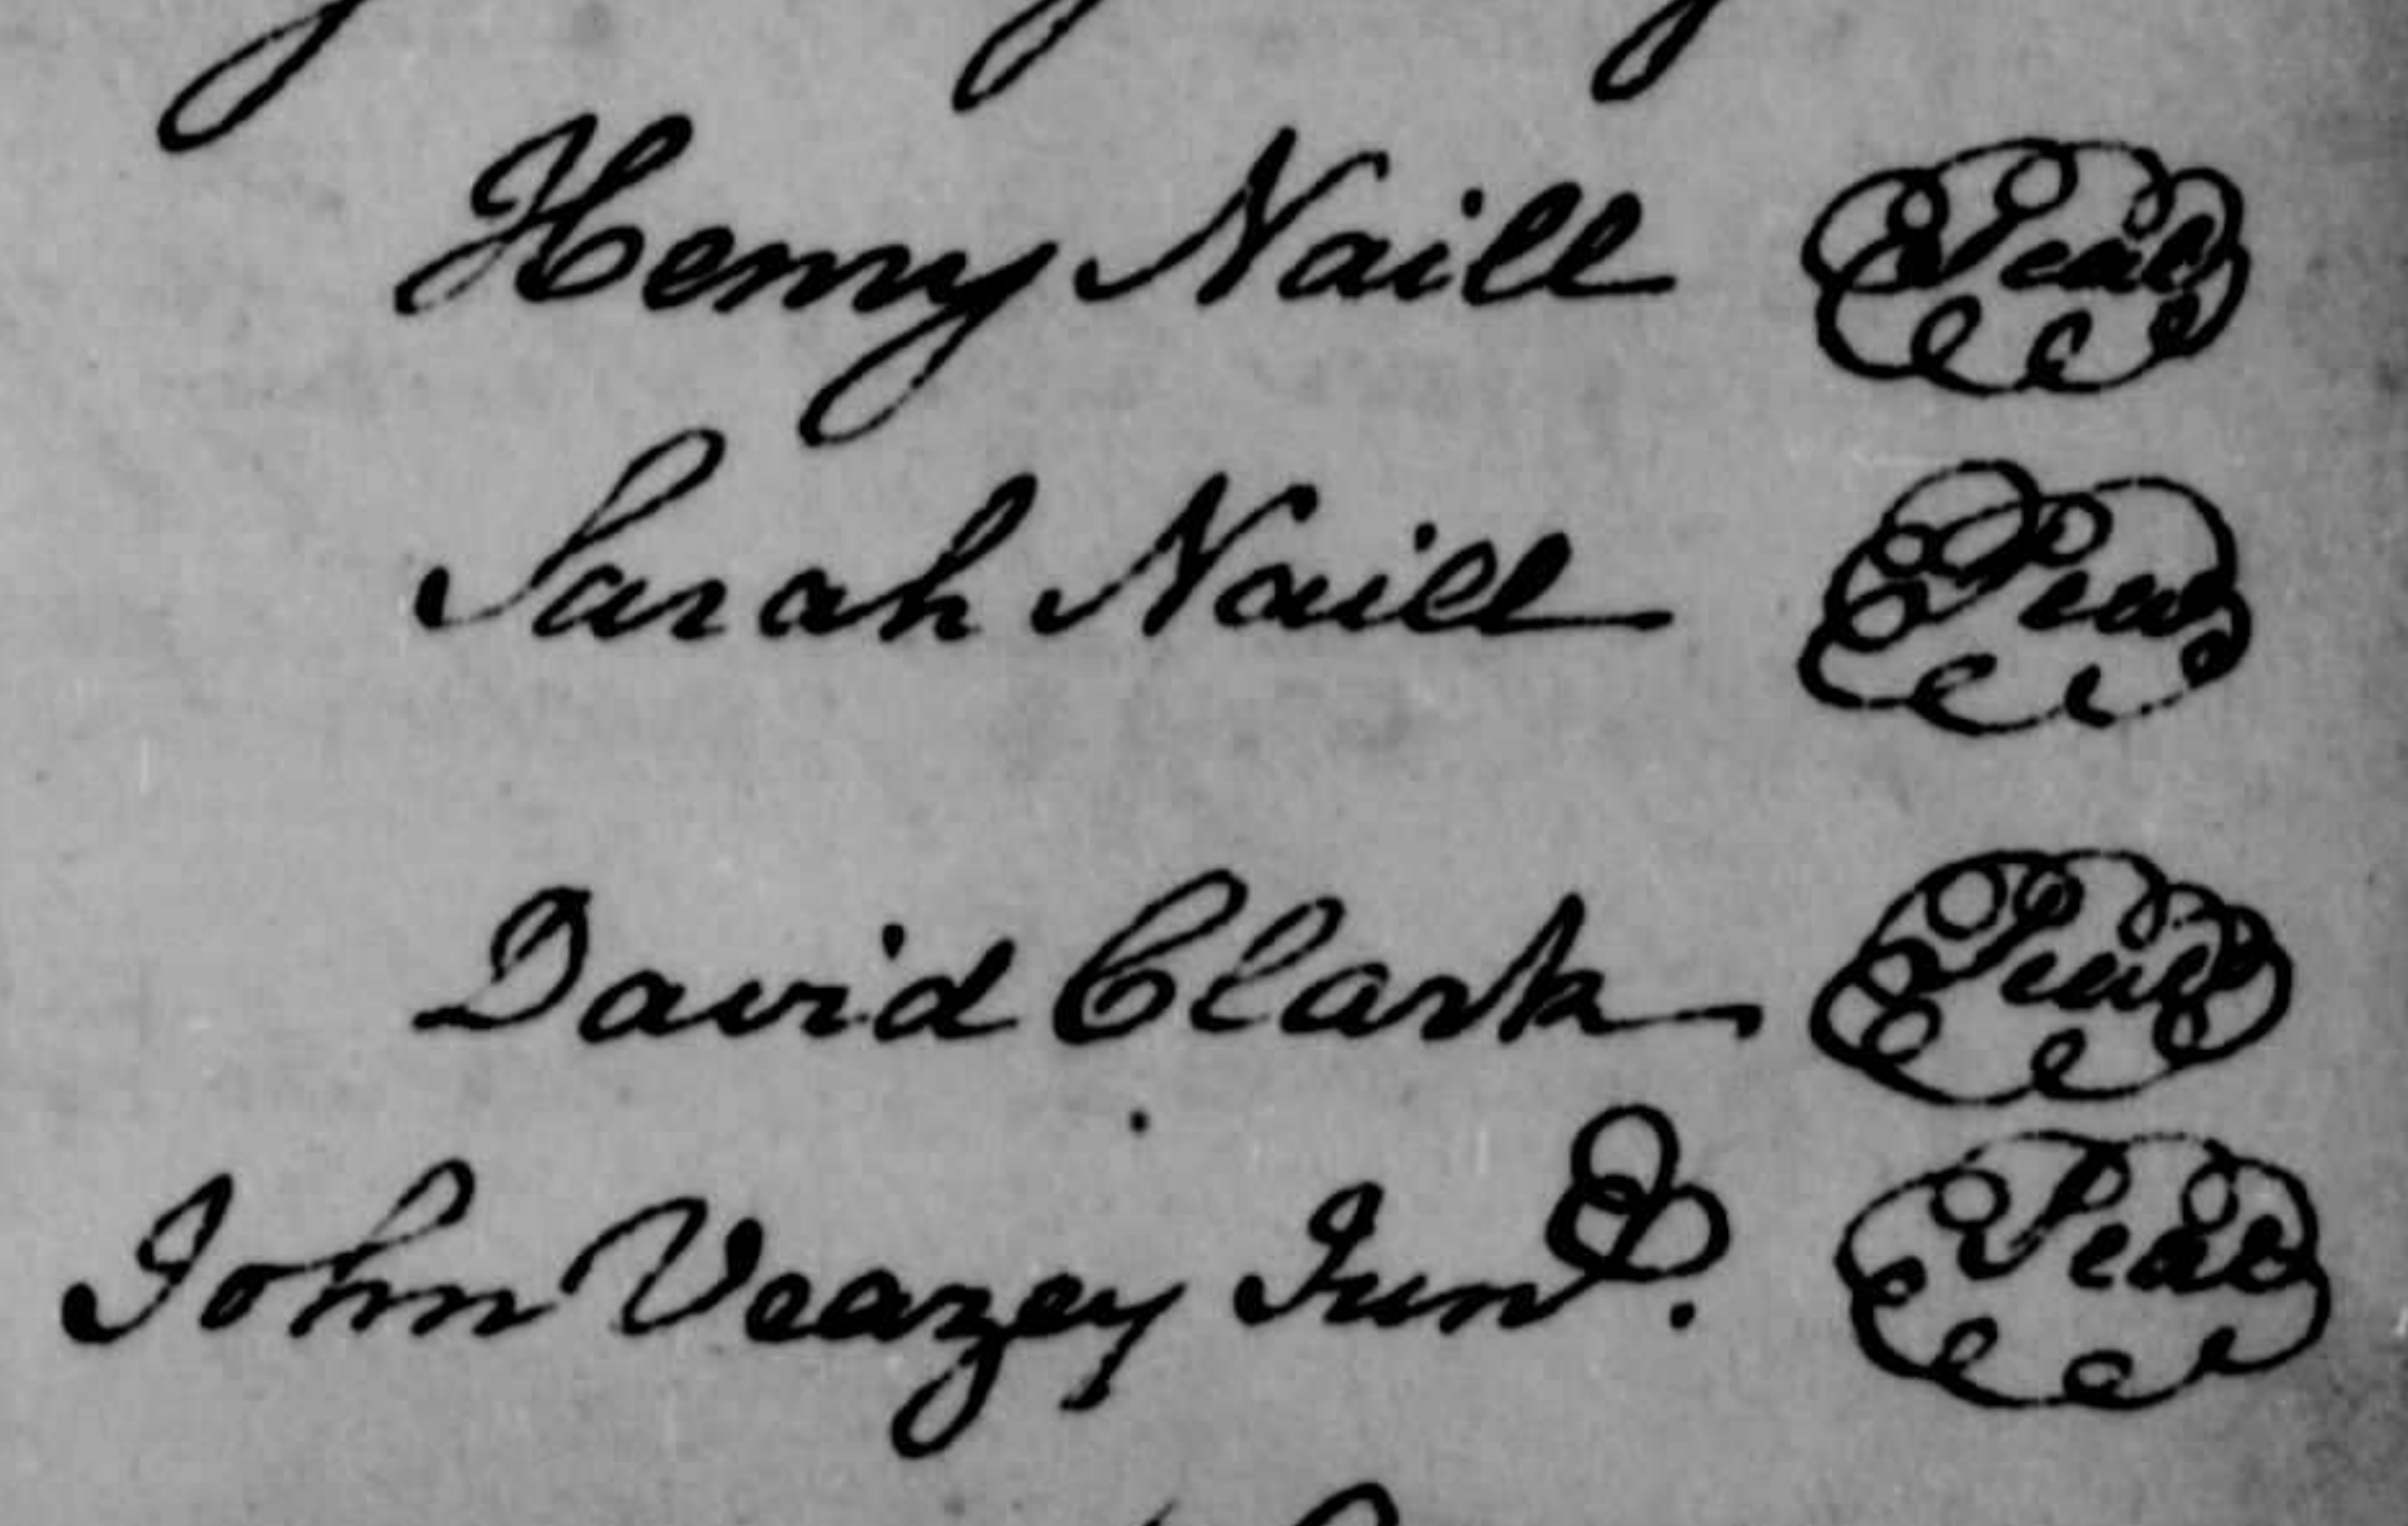 Henry Naill Seal
Sarah Naill Seal
David Clark Seal
John Veazey Junr. Seal